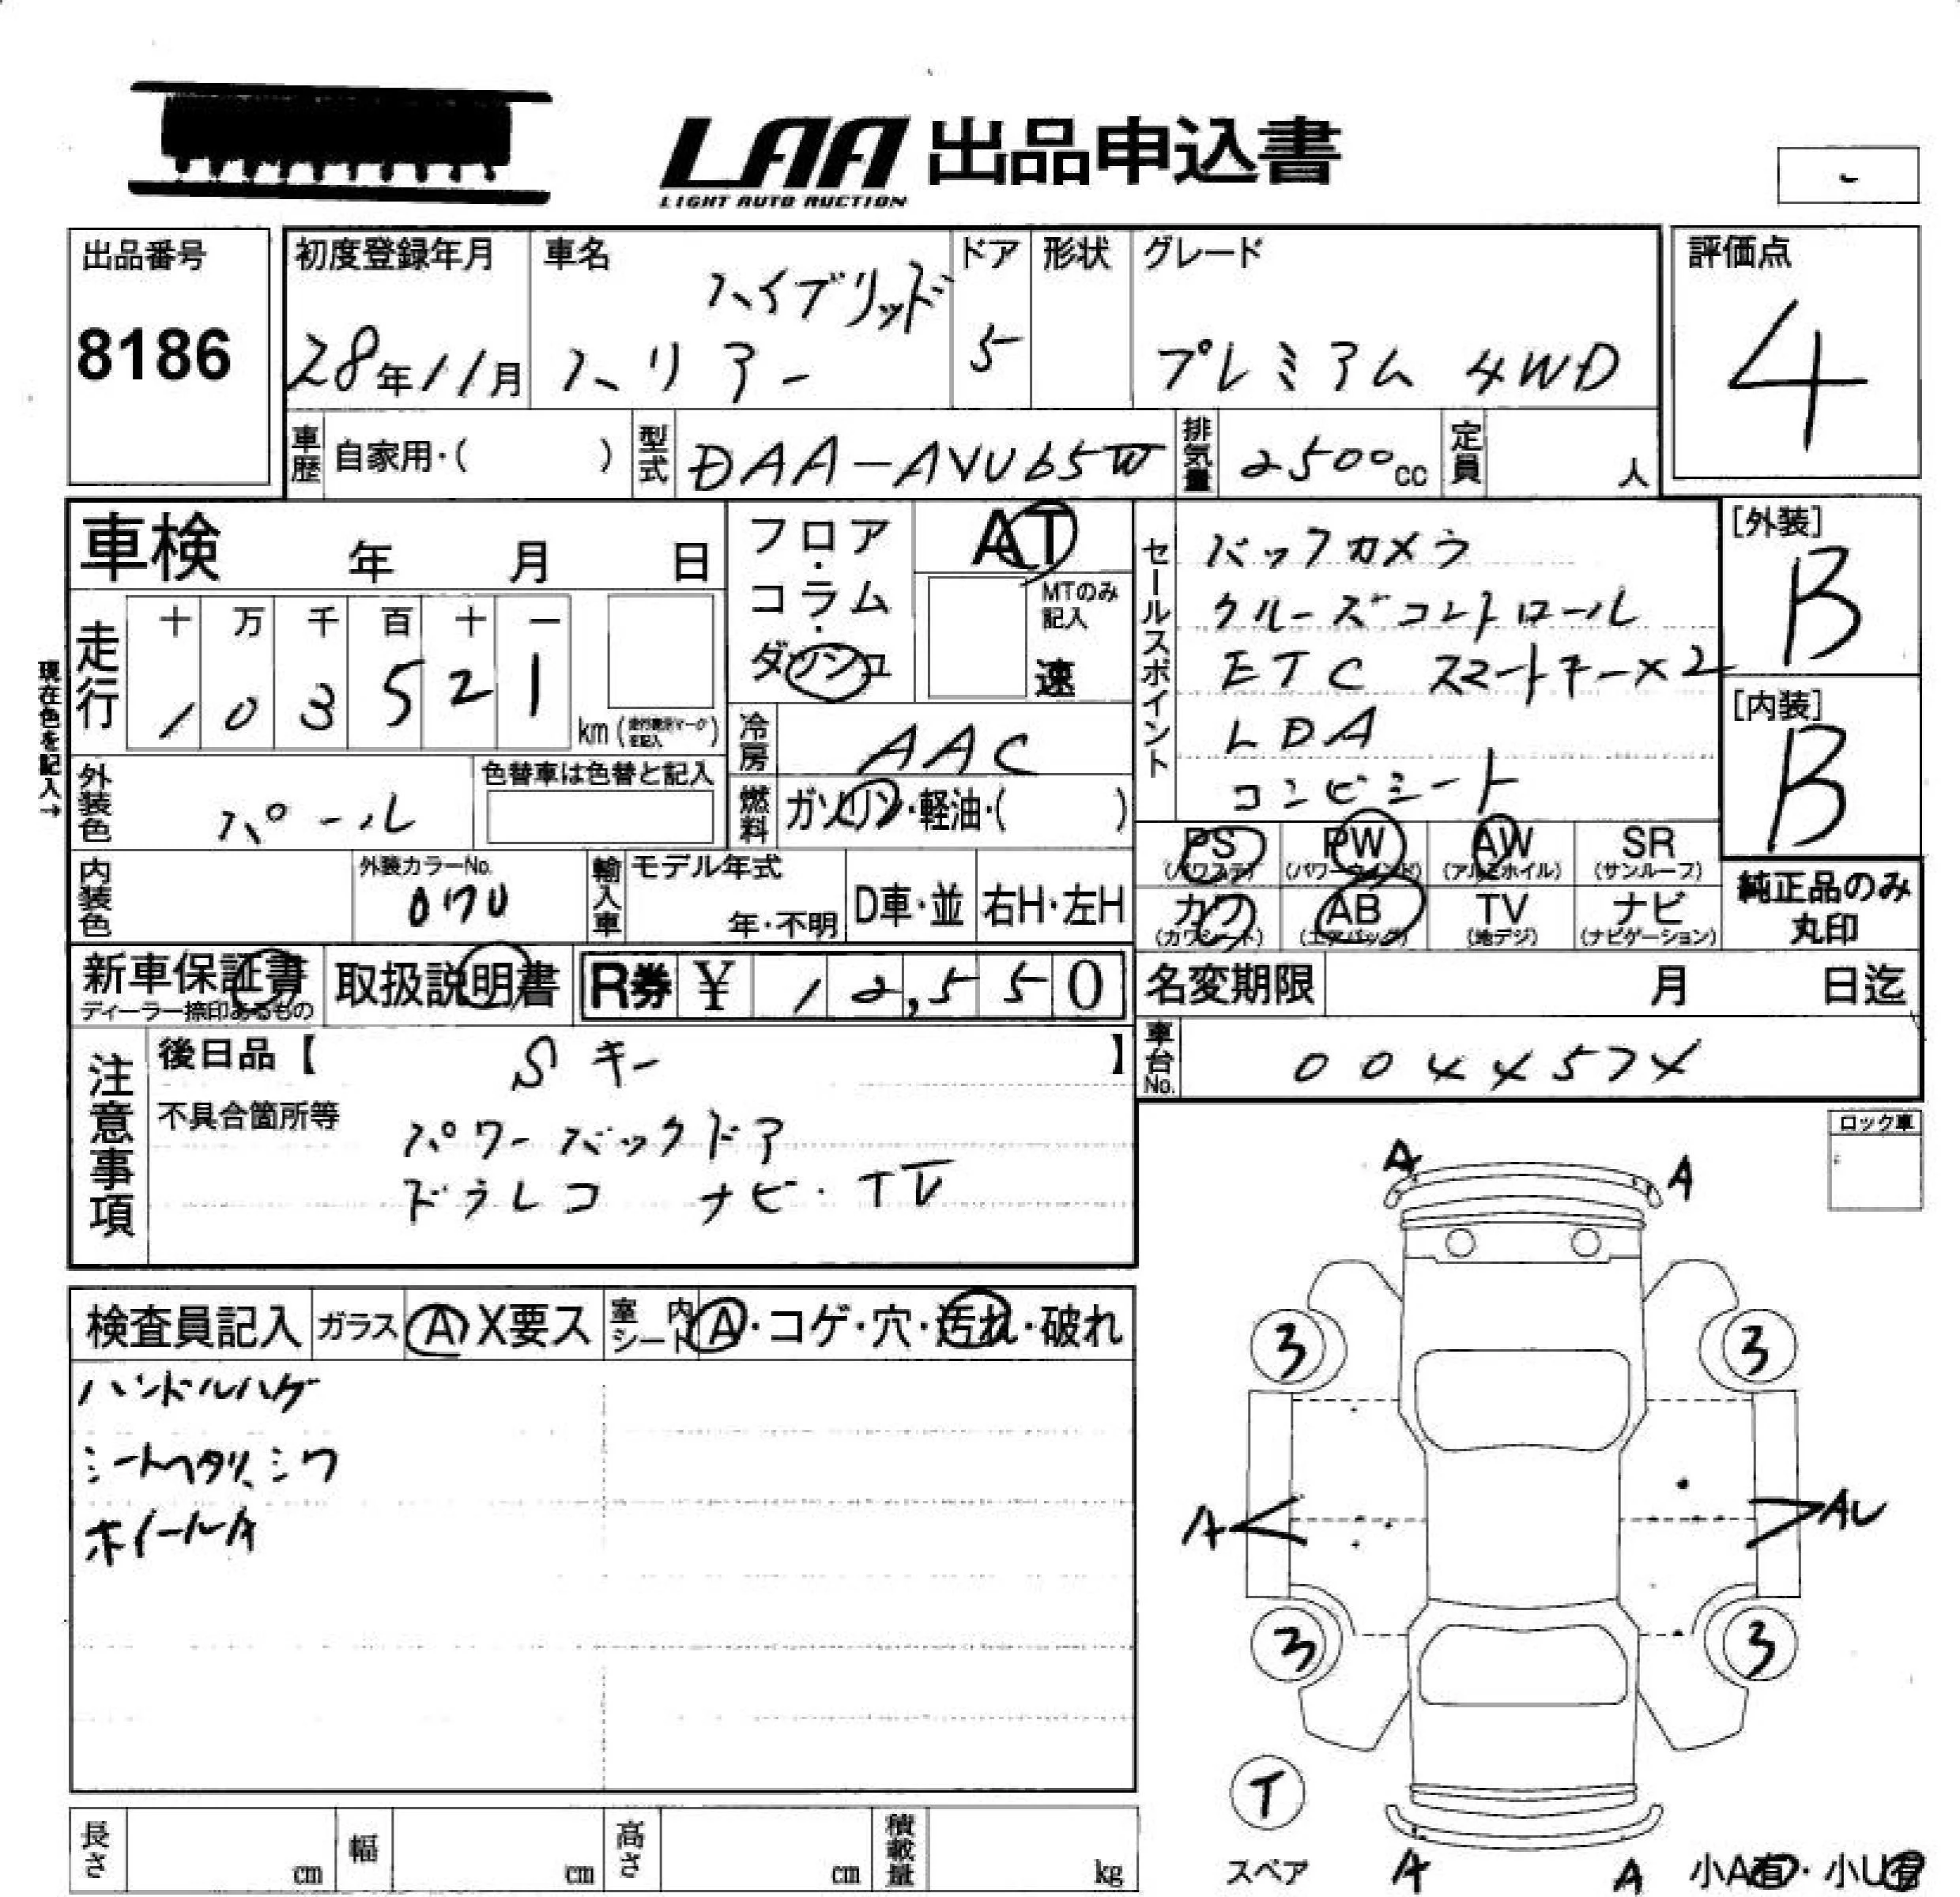 LAA 出品申込書
LIGHT AUTO AUCTION
出品番号
8186
初度登録年月
28年11月
車名
ハイブリッド
ハリアー
ドア
5
形状
グレード
プレミアム 4WD
評価点
4
車歴 自家用・( )
型式 DAA-AVU65W
排気量 2500cc
定員 人
車検 年 月 日
走行
十 万 千 百 十 一
1 0 3 5 2 1
km
現在色を記入→
外装色 パール
色替車は色替と記入
内装色
外装カラーNo.
070
輸入車
モデル年式
年・不明
D車・並
右H・左H
フロア・
コラム・
ダッシュ
AT
MTのみ
記入
速
冷房 AAC
燃料 ガソリン・軽油・( )
セールスポイント
バックカメラ
クルーズコントロール
ETC スマートキー×2
LDA
コンビシート
[外装]
B
[内装]
B
PS PW AW SR
(パワステ) (パワーウインド) (アルミホイル) (サンルーフ)
カワ AB TV ナビ
(カワシート) (エアバッグ) (地デジ) (ナビゲーション)
純正品のみ
丸印
新車保証書
ディーラー捺印あるもの
取扱説明書
R券 ¥ 12,550
名変期限 月 日迄
車台No. 0044574
注意事項
後日品【 Sキー 】
不具合箇所等
パワーバックドア
ドラレコ ナビ・TV
ロック車
検査員記入
ガラス A X要ス
室内シート A・コゲ・穴・汚れ・破れ
ハンドルハゲ
シートヘタリ、シワ
ホイールA
A A
3 3
A AU
3 3
T
スペア
A A
小A有・小U有
長さ cm
幅 cm
高さ cm
積載量 kg